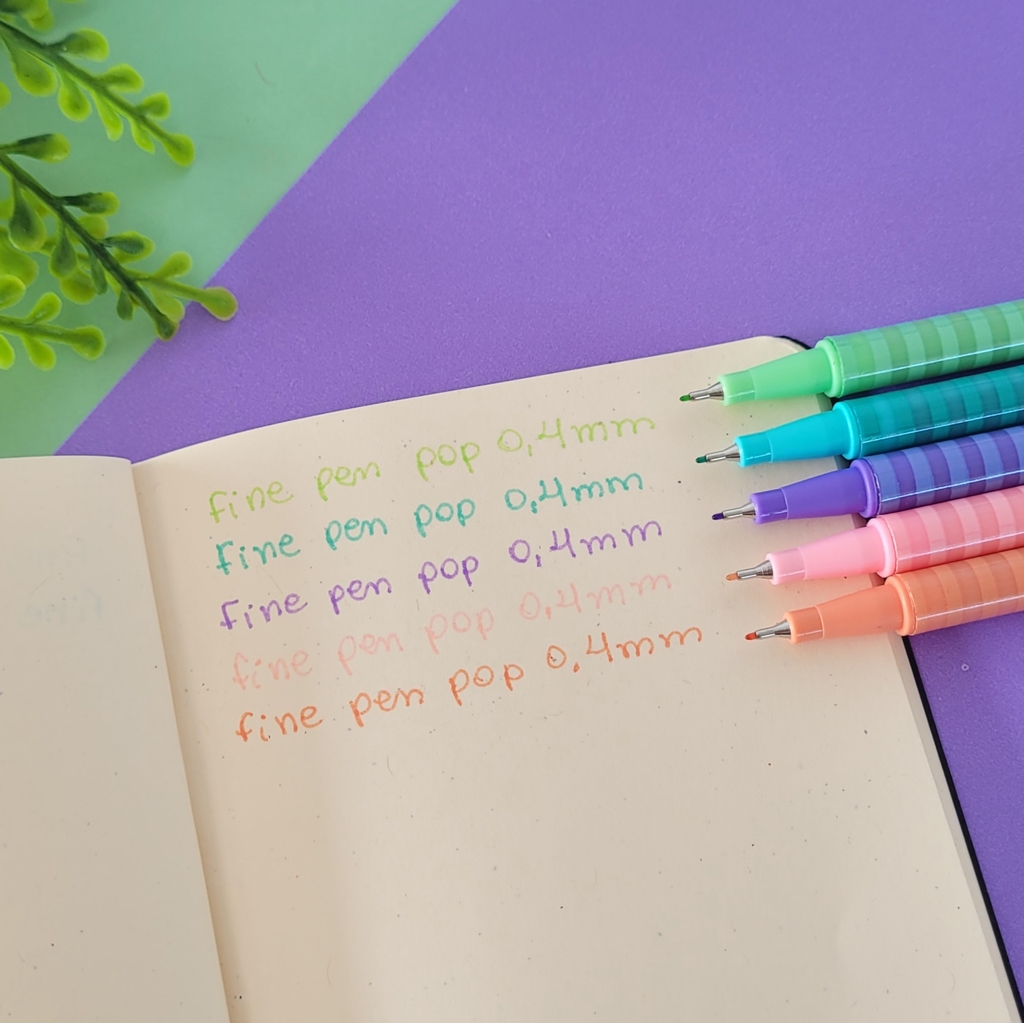 fine pen pop 0,4mm
fine pen pop 0,4mm
fine pen pop 0,4mm
fine pen pop 0,4mm
fine pen pop 0,4mm